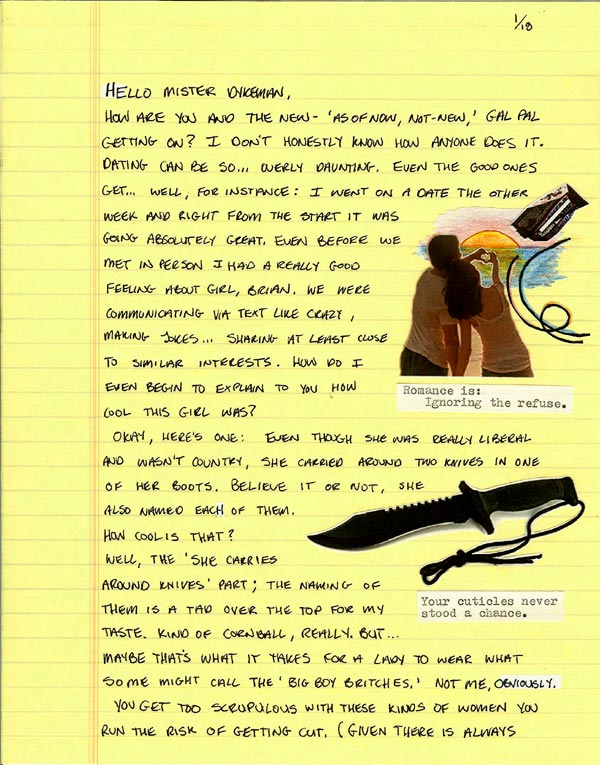 1/18
HELLO MISTER DYKEMAN,
HOW ARE YOU AND THE NEW- 'AS OF NOW, NOT-NEW,' GAL PAL
GETTING ON? I DON'T HONESTLY KNOW HOW ANYONE DOES IT.
DATING CAN BE SO... OVERLY DAUNTING. EVEN THE GOOD ONES
GET... WELL, FOR INSTANCE: I WENT ON A DATE THE OTHER
WEEK AND RIGHT FROM THE START IT WAS
GOING ABSOLUTELY GREAT. EVEN BEFORE WE
MET IN PERSON I HAD A REALLY GOOD
FEELING ABOUT GIRL, BRIAN. WE WERE
COMMUNICATING VIA TEXT LIKE CRAZY,
MAKING JOKES... SHARING AT LEAST CLOSE
TO SIMILAR INTERESTS. HOW DO I
EVEN BEGIN TO EXPLAIN TO YOU HOW
COOL THIS GIRL WAS?
Romance is:
Ignoring the refuse.
OKAY, HERE'S ONE: EVEN THOUGH SHE WAS REALLY LIBERAL
AND WASN'T COUNTRY, SHE CARRIED AROUND TWO KNIVES IN ONE
OF HER BOOTS. BELIEVE IT OR NOT, SHE
ALSO NAMED EACH OF THEM.
HOW COOL IS THAT?
WELL, THE 'SHE CARRIES
AROUND KNIVES' PART; THE NAMING OF
THEM IS A TAD OVER THE TOP FOR MY
TASTE. KIND OF CORNBALL, REALLY. BUT...
Your cuticles never
stood a chance.
MAYBE THAT'S WHAT IT TAKES FOR A LADY TO WEAR WHAT
SOME MIGHT CALL THE 'BIG BOY BRITCHES.' NOT ME, OBVIOUSLY.
YOU GET TOO SCRUPULOUS WITH THESE KINDS OF WOMEN YOU
RUN THE RISK OF GETTING CUT. (GIVEN THERE IS ALWAYS